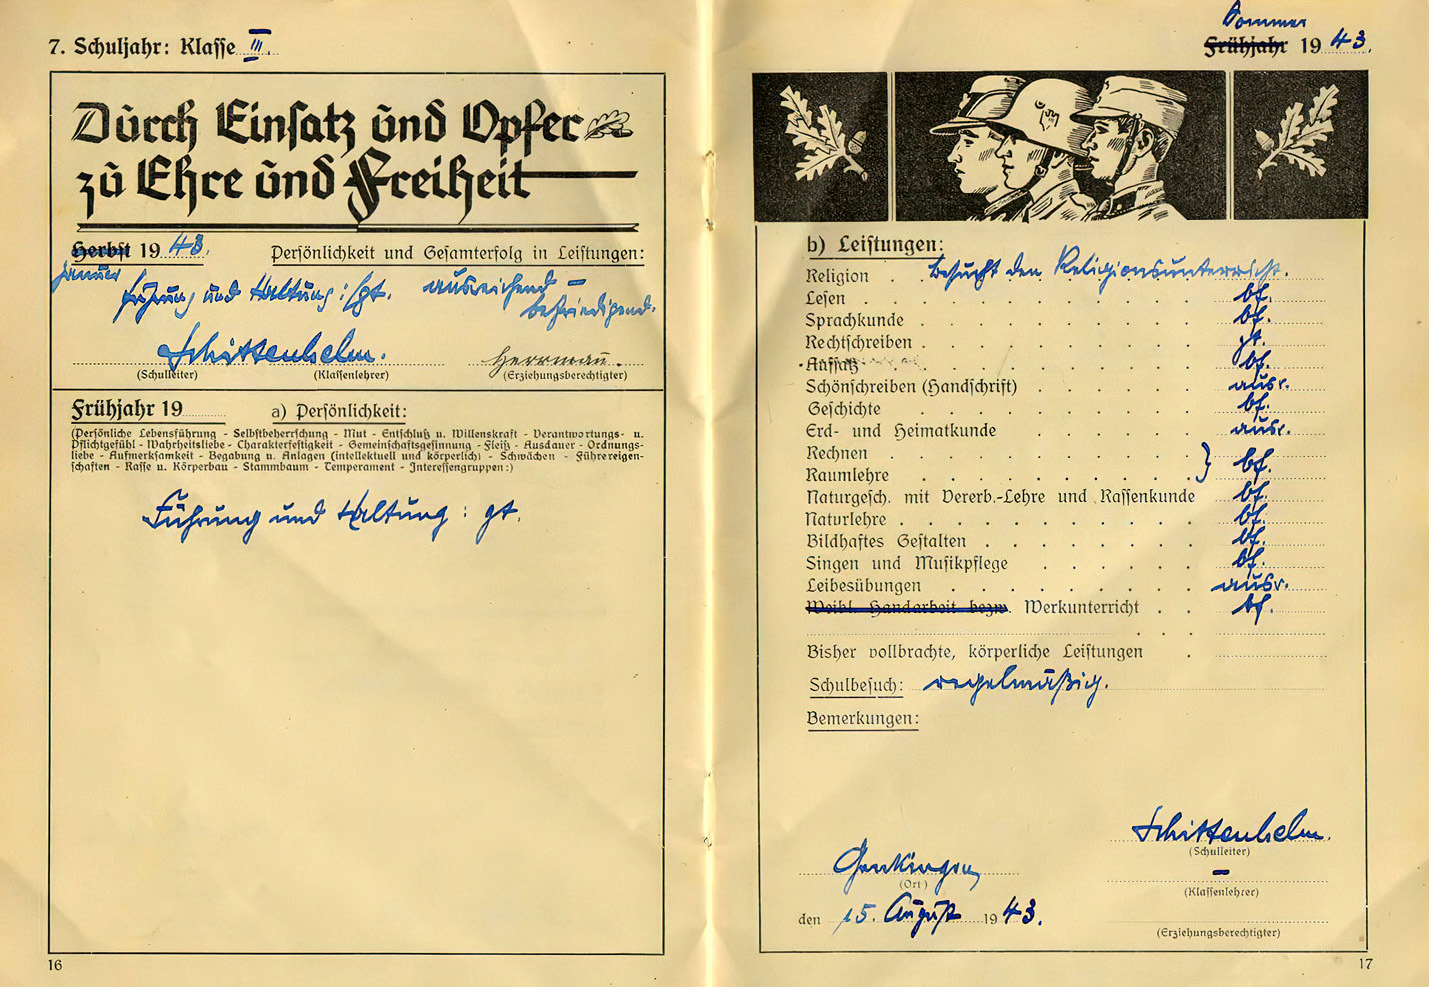 7. Schuljahr: Klasse III.
Durch Einsatz und Opfer
zu Ehre und Freiheit
Herbst 1943. Persönlichkeit und Gesamterfolg in Leistungen:
Januar
Führung und Haltung: gt. ausreichend –
befriedigend.
Schittenhelm. Herrmann.
(Schulleiter) (Klassenlehrer) (Erziehungsberechtigter)
Frühjahr 19 a) Persönlichkeit:
(Persönliche Lebensführung - Selbstbeherrschung - Mut - Entschluß u. Willenskraft - Verantwortungs- u.
Pflichtgefühl - Wahrheitsliebe - Charakterfestigkeit - Gemeinschaftsgesinnung - Fleiß - Ausdauer - Ordnungs-
liebe - Aufmerksamkeit - Begabung u. Anlagen (intellektuell und körperlich) - Schwächen - Führereigen-
schaften - Rasse u. Körperbau - Stammbaum - Temperament - Interessengruppen:)
Führung und Haltung: gt.
16
Sommer
Frühjahr 1943.
b) Leistungen:
Religion . besucht den Religionsunterricht.
Lesen bf.
Sprachkunde bf.
Rechtschreiben gt.
Aufsatz bf.
Schönschreiben (Handschrift) ausr.
Geschichte bf.
Erd- und Heimatkunde ausr.
Rechnen
Raumlehre } bf.
Naturgesch. mit Vererb.-Lehre und Rassenkunde bf.
Naturlehre bf.
Bildhaftes Gestalten bf.
Singen und Musikpflege bf.
Leibesübungen ausr.
Weibl. Handarbeit bezw. Werkunterricht bf.
Bisher vollbrachte, körperliche Leistungen
Schulbesuch: regelmäßig.
Bemerkungen:
Schittenhelm.
(Schulleiter)
Genkingen
(Ort)
–
(Klassenlehrer)
den 15. August 1943.
(Erziehungsberechtigter)
17